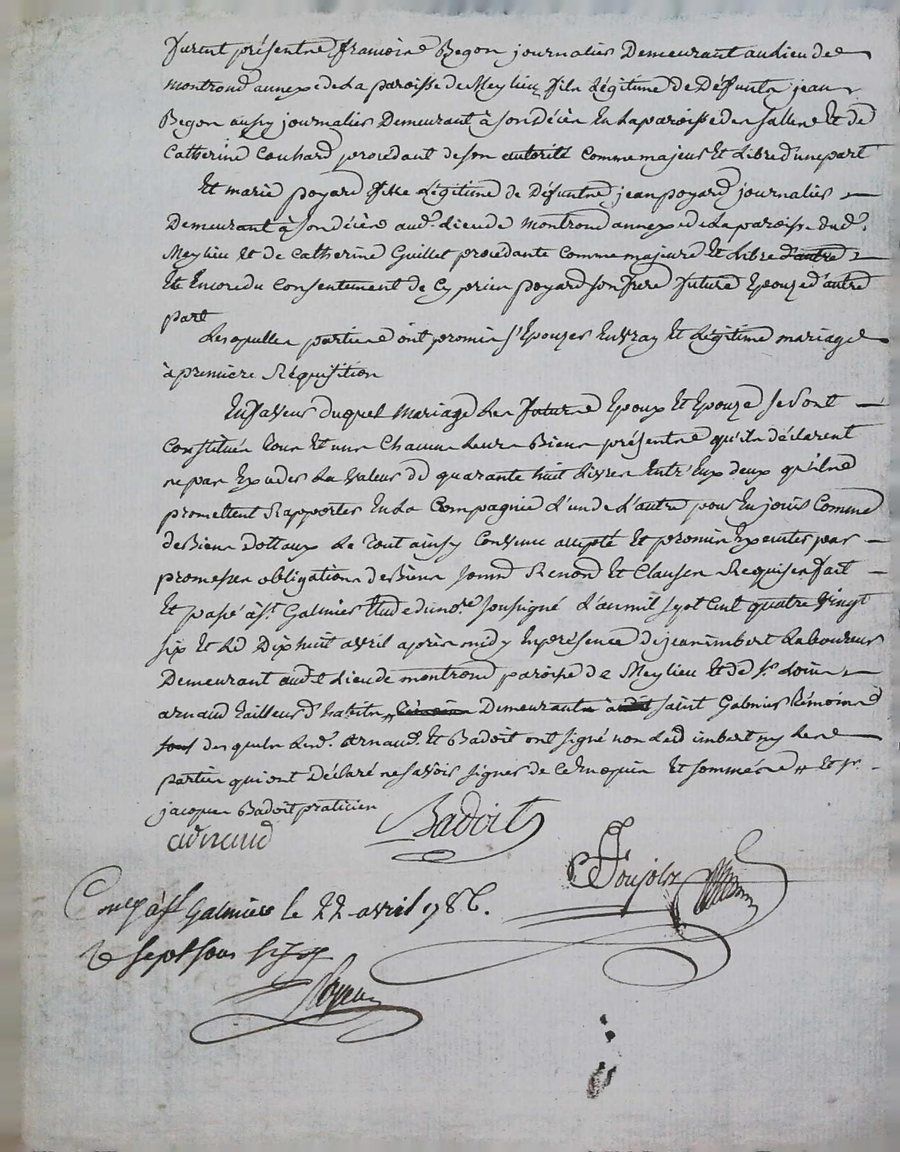 furent présents françois Begon journalier Demeurant au lieu de
montrond annexe de La paroisse de Meylieu fils Légitime de Défunts jean
Begon aussy journalier Demeurant à son décès En la paroisse de Et de
Catherine Couhard procédant de son autorité Comme majeur Et Libre d'une part
Et marie poyard fille Légitime de Défunt jean poyard journalier
Demeurant à son décès aud. lieu de montrond annexe de La paroisse dud.
Meylieu et de Catherine Guillet procédante Comme majeure Et Libre d'autre
Et Encore du Consentement de Cyprien poyard son frere future Epouze d'autre
part
Lesquelles parties ont promis s'Epouzer En vray Et Légitime mariage
à première Réquisition
En faveur duquel Mariage Les futurs Epoux Et Epouze se sont
Constitués tous Et uns Chacuns Leurs Biens présents qu'ils déclarent
ne pas Exceder La valeur de quarante huit Livres Entr'Eux deux qu'ils
promettent Rapporter En La Compagnie L'un de L'autre pour En jouir Comme
de Biens dottaux Le Tout ainsy Convenu accepté Et promis Exécuter par
promesses obligations de Biens Renond Et Clauses Requises fait
Et passé à St. Galmier Etude du nore soussigné L'an mil sept Cent quatre vingt
six Et Le Dix huit avril après midy En présence de jean imbert Laboureur
Demeurant aud. Lieu de montrond paroisse de Meylieu Et de Sr. Louis
arnaud Tailleur d'habits Demeurants à saint Galmier Témoins
desquels Led. Arnaud Et Badoit ont signé non Led imbert ny Les
parties qui ont Déclaré ne savoir signer de Ce Enquis Et sommés Et Sr.
jacques Badoit praticien
arnaud
Badoit
Poujols
à St Galmier le 22 avril 1786.
sept sous six